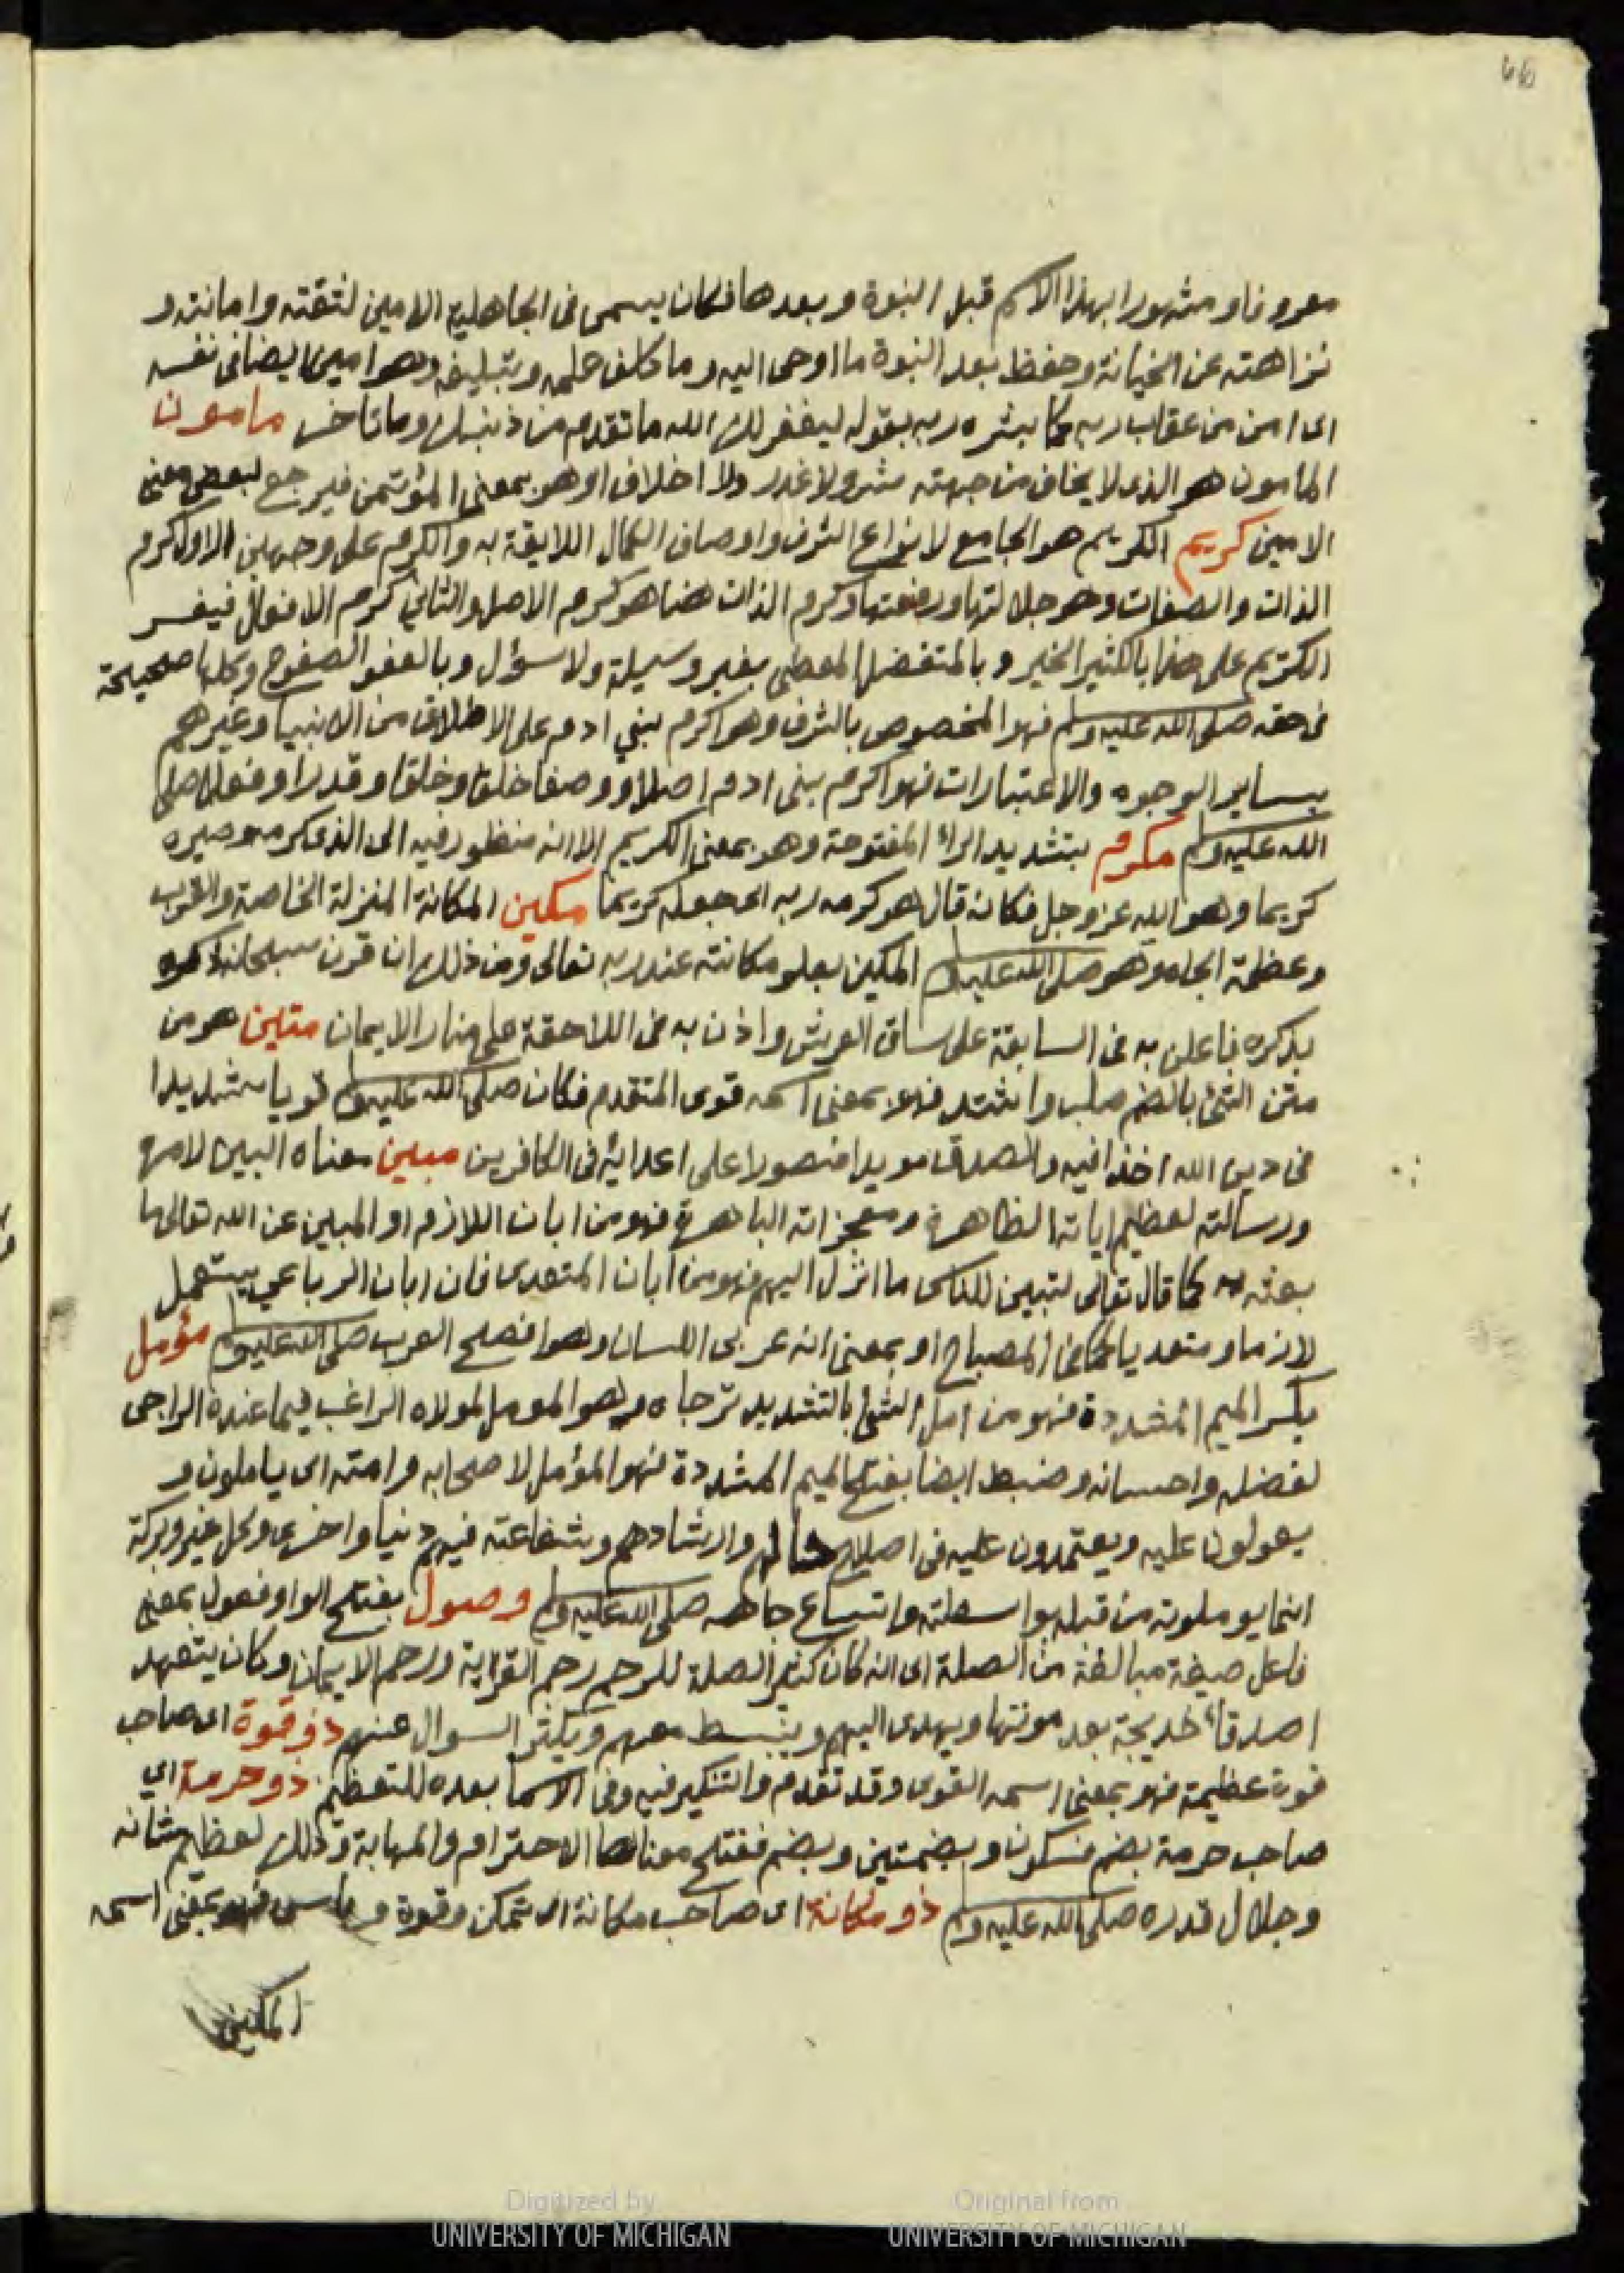 66
معروفا ومشهورا بهذا الاسم قبل النبوة وبعدها فكان يسمى في الجاهلية الامين لثقته وامانته و
نزاهته عن الخيانة وحفظ بعد النبوة ما اوحى اليه وما كلف علمه وتبليغه وهو امين ايضا في نفسه
اى امن من عقاب ربه كما بشره ربه بقوله ليغفر لك الله ما تقدم من ذنبك وما تاخر مامون
المامون هو الذى لا يخاف من جهته شر ولا غدر ولا اخلاف او هو بمعنى المؤتمن فيرجع لبعض معنى
الامين كريم الكريم هو الجامع لانواع الشرف واوصاف الكمال اللايقة به والكرم على وجهين الاول كرم
الذات والصفات وهو جلالتها ورفعتها وكرم الذات هنا هو كرم الاصل والثاني كرم الافعال فيفسر
الكريم على هذا بالكثير الخير وبالمتفضل المعطى بغير وسيلة ولا سؤل وبالعفو الصفوح وكلها صحيحة
في حقه صلى الله عليه وسلم فهو المخصوص بالشرف وهو اكرم بني ادم على الاطلاق من الانبيا وغيرهم
بساير الوجوه والاعتبارات فهو اكرم بنى ادم اصلا ووصفا خلقا وخلقا وقدرا وفعلا صلى
الله عليه وسلم مكرم بتشديد الراء المفتوحة وهو بمعنى الكريم الا انه منظور فيه الى الذى كرمه وصيره
كريما وهو الله عز وجل فكانه قال هو كرمه ربه اى جعله كريما مكين المكانة المنزلة الخاصة والقرب
وعظمة الجاه وهو صلى الله عليه وسلم المكين بعلو مكانته عند ربه تعالى ومن ذلك ان قرن سبحانه ذكره
بذكره فاعلن به في السابقة على ساق العرش واذن به في اللاحقة على منار الايمان متين هو من
متن الشئ بالضم صلب واشتد فهو بمعنى اسمه قوى المتقدم فكان صلى الله عليه وسلم قويا شديدا
في دين الله اخذا فيه والصدق مويدا منصورا على اعدائه في الكافرين مبين معناه البين امره
ورسالته لعظيم اياته الظاهرة ومعجزاته الباهرة فهو من ابان اللازم او المبين عن الله تعالى ما
بعثه به كما قال تعالى لتبين للناس ما انزل اليهم فهو من ابان المتعدى فان ابان الرباعي يستعمل
لازما ومتعديا كما في المصباح او بمعنى انه عربى اللسان وهو افصح العرب صلى الله عليه وسلم مؤمل
بكسر الميم المشددة فهو من امل الشئ بالتشديد ترجاه وهو المومل لمولاه الراغب فيما عنده الراجى
لفضله واحسانه وضبط ايضا بفتح الميم المشددة فهو المؤمل لاصحابه وامته اى ياملون و
يعولون عليه ويعتمدون عليه في اصلاح حالهم وارشادهم وشفاعته فيهم دنيا واخرى وكل خير وبركة
انما يوملونه من قبله بواسطته واتساع جاهه صلى الله عليه وسلم وصول بفتح الواو فعول بمعنى
فاعل صيغة مبالغة من الصلة اى انه كان كثير الصلة للرحم رحم القرابة ورحم الايمان وكان يتعهد
اصدقاء خديجة بعد موتها ويهدى اليهم وينبسط معهم ويكثر السوال عنهم ذو قوة اى صاحب
قوة عظيمة فهو بمعنى اسمه القوى وقد تقدم والتنكير فيه وفي الاسما بعده للتعظيم ذو حرمة اي
صاحب حرمة بضم فسكون وبضمتين وبضم ففتح معناها الاحترام والمهابة وذلك لعظيم شانه
وجلال قدره صلى الله عليه وسلم ذو مكانة اى صاحب مكانة اى تمكن وقوة فهو بمعنى اسمه
المكين
Digitized by UNIVERSITY OF MICHIGAN
Original from UNIVERSITY OF MICHIGAN